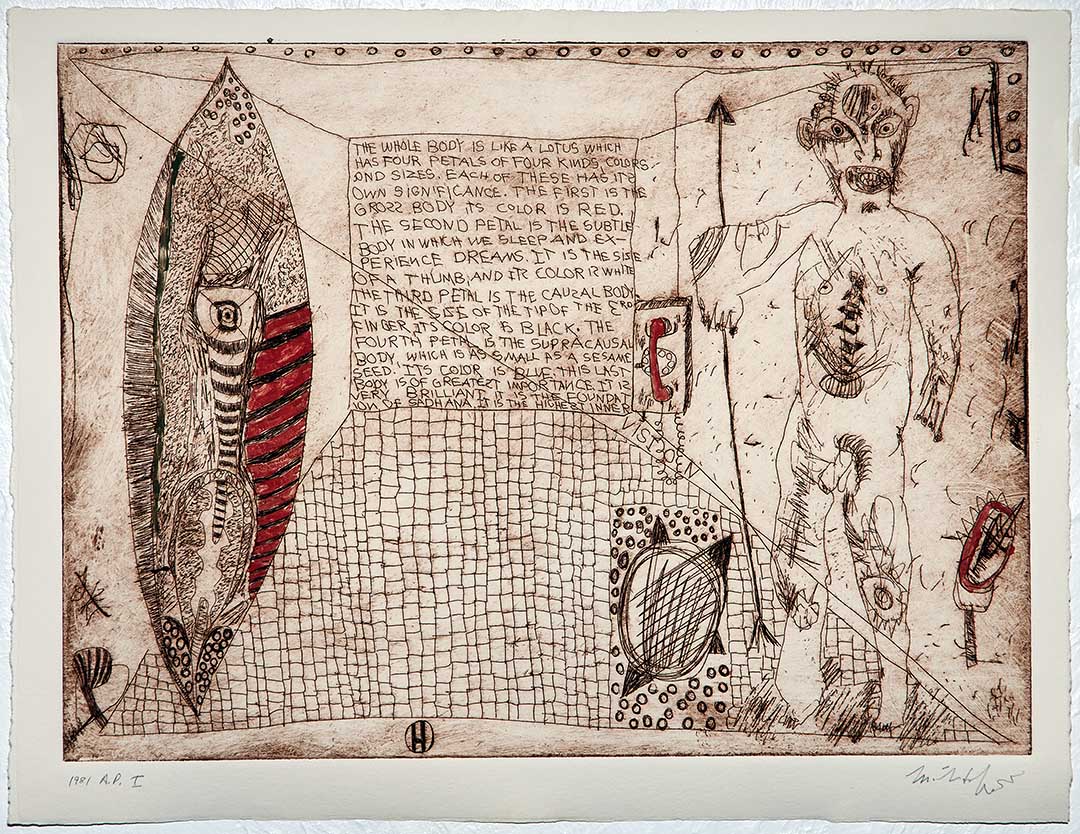 THE WHOLE BODY IS LIKE A LOTUS WHICH
HAS FOUR PETALS OF FOUR KINDS, COLORS,
OND SIZES. EACH OF THESE HAS ITS
OWN SIGNIFICANCE. THE FIRST IS THE
GROSS BODY ITS COLOR IS RED.
THE SECOND PETAL IS THE SUBTLE
BODY IN WHICH WE SLEEP AND EX-
PERIENCE DREAMS. IT IS THE SISE
OF A THUMB, AND ITS COLOR IS WHITE
THE THIRD PETAL IS THE CAUSAL BODY
IT IS THE SISE OF THE TIP OF THE 3RD
FINGER ITS COLOR IS BLACK. THE
FOURTH PETAL IS THE SUPRACAUSAL
BODY. WHICH IS AS SMALL AS A SESAME
SEED. ITS COLOR IS BLUE. THIS LAST
BODY IS OF GREATEST IMPORTANCE. IT IS
VERY BRILLIANT. IT IS THE FOUNDAT
ION OF SADHANA. IT IS THE HIGHEST INNER
H
1981 A.P. I